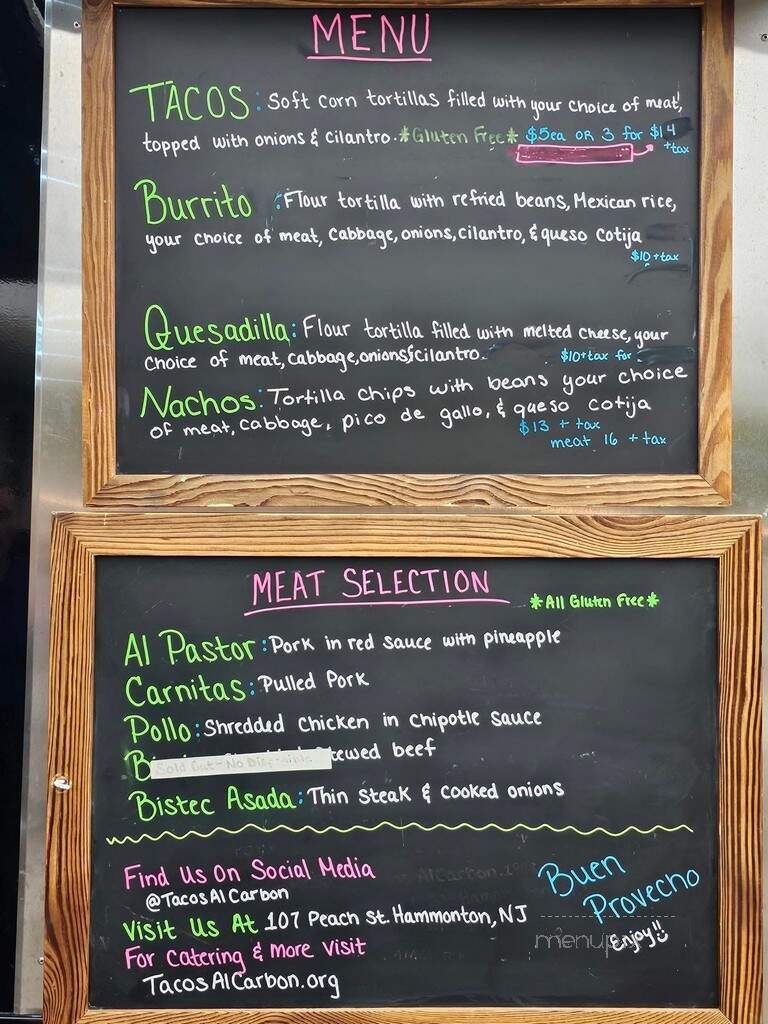 MENU
TACOS: Soft corn tortillas filled with your choice of meat,
topped with onions & cilantro. *Gluten Free* $5ea OR 3 for $14
+tax
Burrito : Flour tortilla with refried beans, Mexican rice,
your choice of meat, Cabbage, onions, cilantro, & queso Cotija
$10 + tax
Quesadilla: Flour tortilla filled with melted cheese, your
choice of meat, cabbage, onions & cilantro.
$10+tax for
Nachos: Tortilla chips with beans your choice
of meat, cabbage, pico de gallo, & queso cotija
$13 + tax
meat 16 + tax
MEAT SELECTION
*All Gluten Free*
Al Pastor: Pork in red sauce with pineapple
Carnitas: Pulled Pork
Pollo: Shredded Chicken in chipotle sauce
Sold Out - No beef
Bistec Asada: Thin Steak & cooked onions
Find Us On Social Media
@TacosAlCarbon
Visit Us At 107 Peach St. Hammonton, NJ
For Catering & More Visit
TacosAlCarbon.org
Buen
Provecho
Enjoy!!